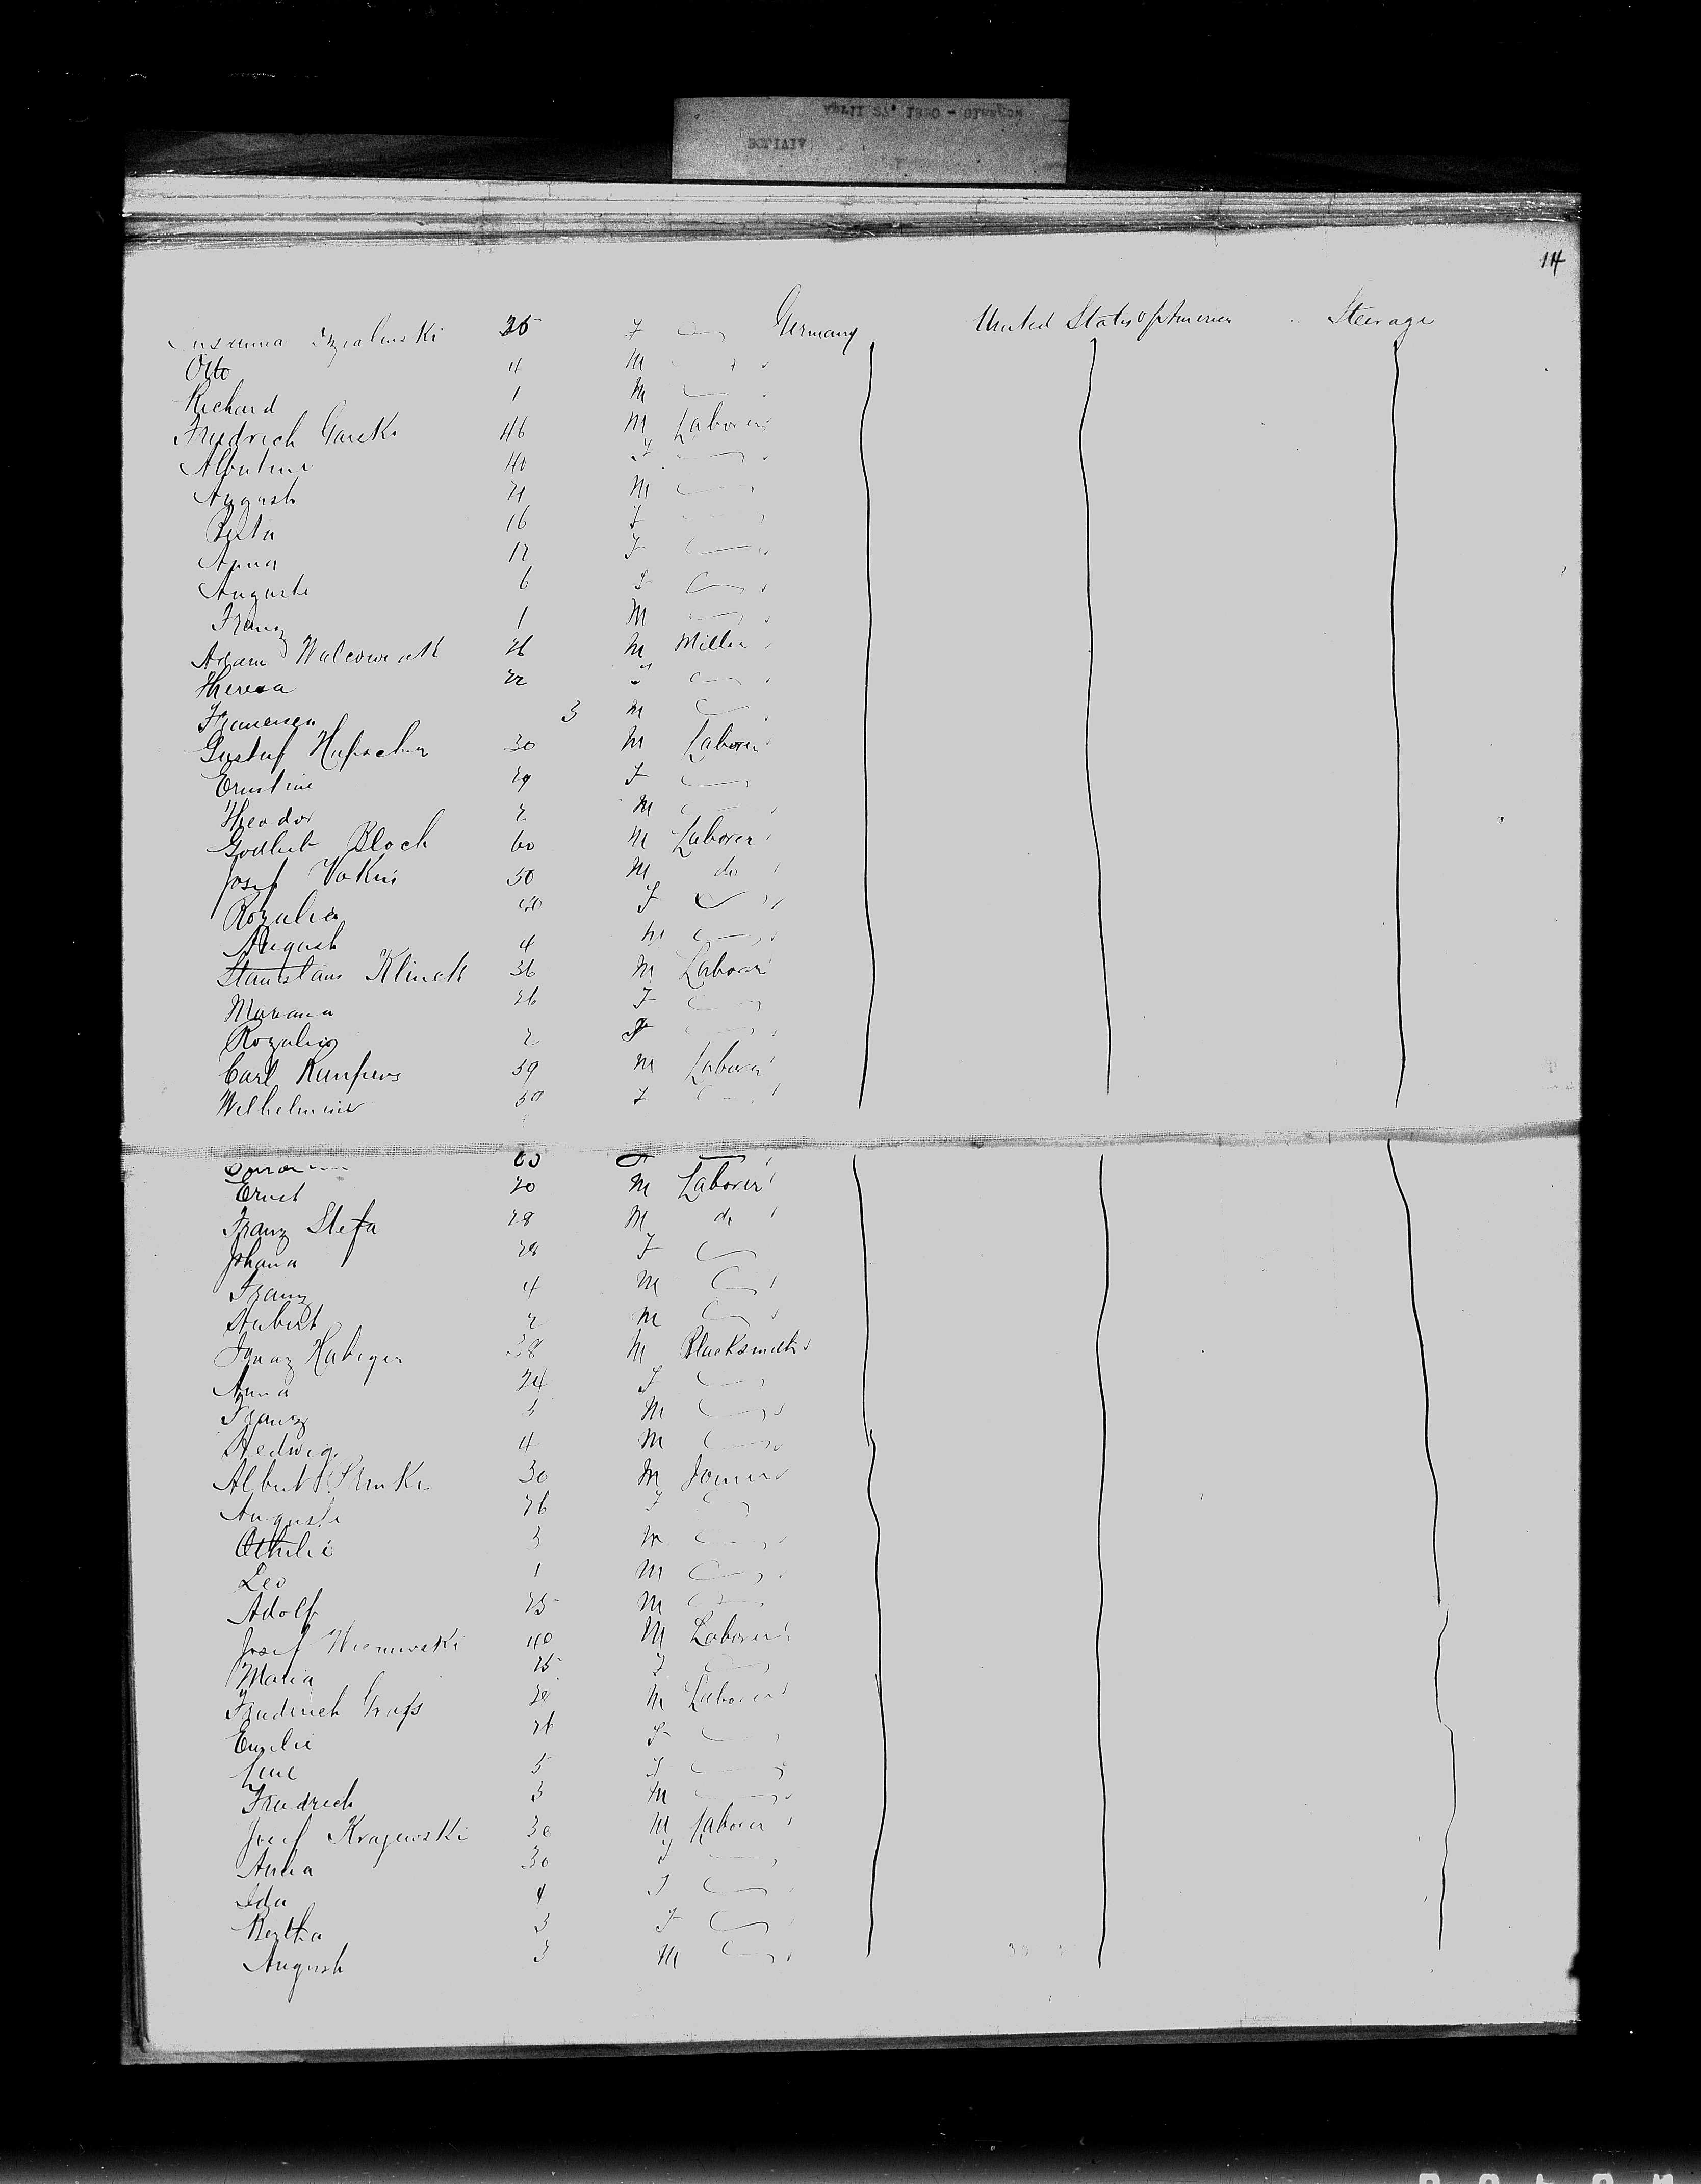 April 23, 1880 - Glasgow
BOLIVIA
114
Susanna 35 F Germany United States of America Steerage
Otto 4 M
Richard 1 M
Friedrich Garske 46 M Laborer
Albertine 40 F
August 21 M
Berta 16 F
Anna 12 F
Auguste 6 F
Franz 1 M
Adam Walcowiak 26 M Miller
Theresa 22 F
3 M
Gustaf 30 M Laborer
Ernstine 29 F
Theodor 2 M
Bloch 60 M Laborer
Josef 50 M do
Rozalia 40 F
August 4 M
Stanislaus Klineck 36 M Laborer
Mariana 26 F
Rozalia 2 F
Carl 59 M Laborer
Wilhelmine 50 F
Ernst 20 M Laborer
Franz Stefa 28 M do
Johana 28 F
Franz 4 M
Hubert 2 M
38 M Blacksmith
Anna 24 F
Franz M
Hedwig 4 M
Albert 30 M Joiner
Auguste 26 F
Othilie 3 M
Leo 1 M
Adolf 25 M
Josef 40 M Laborer
Maria 25 F
Friedrich M Laborer
Emilie 26 F
5 F
Friedrich 3 M
Josef Krajewski 30 M Laborer
Anna 30 F
Ida 4 F
Bertha 3 F
August 3 M